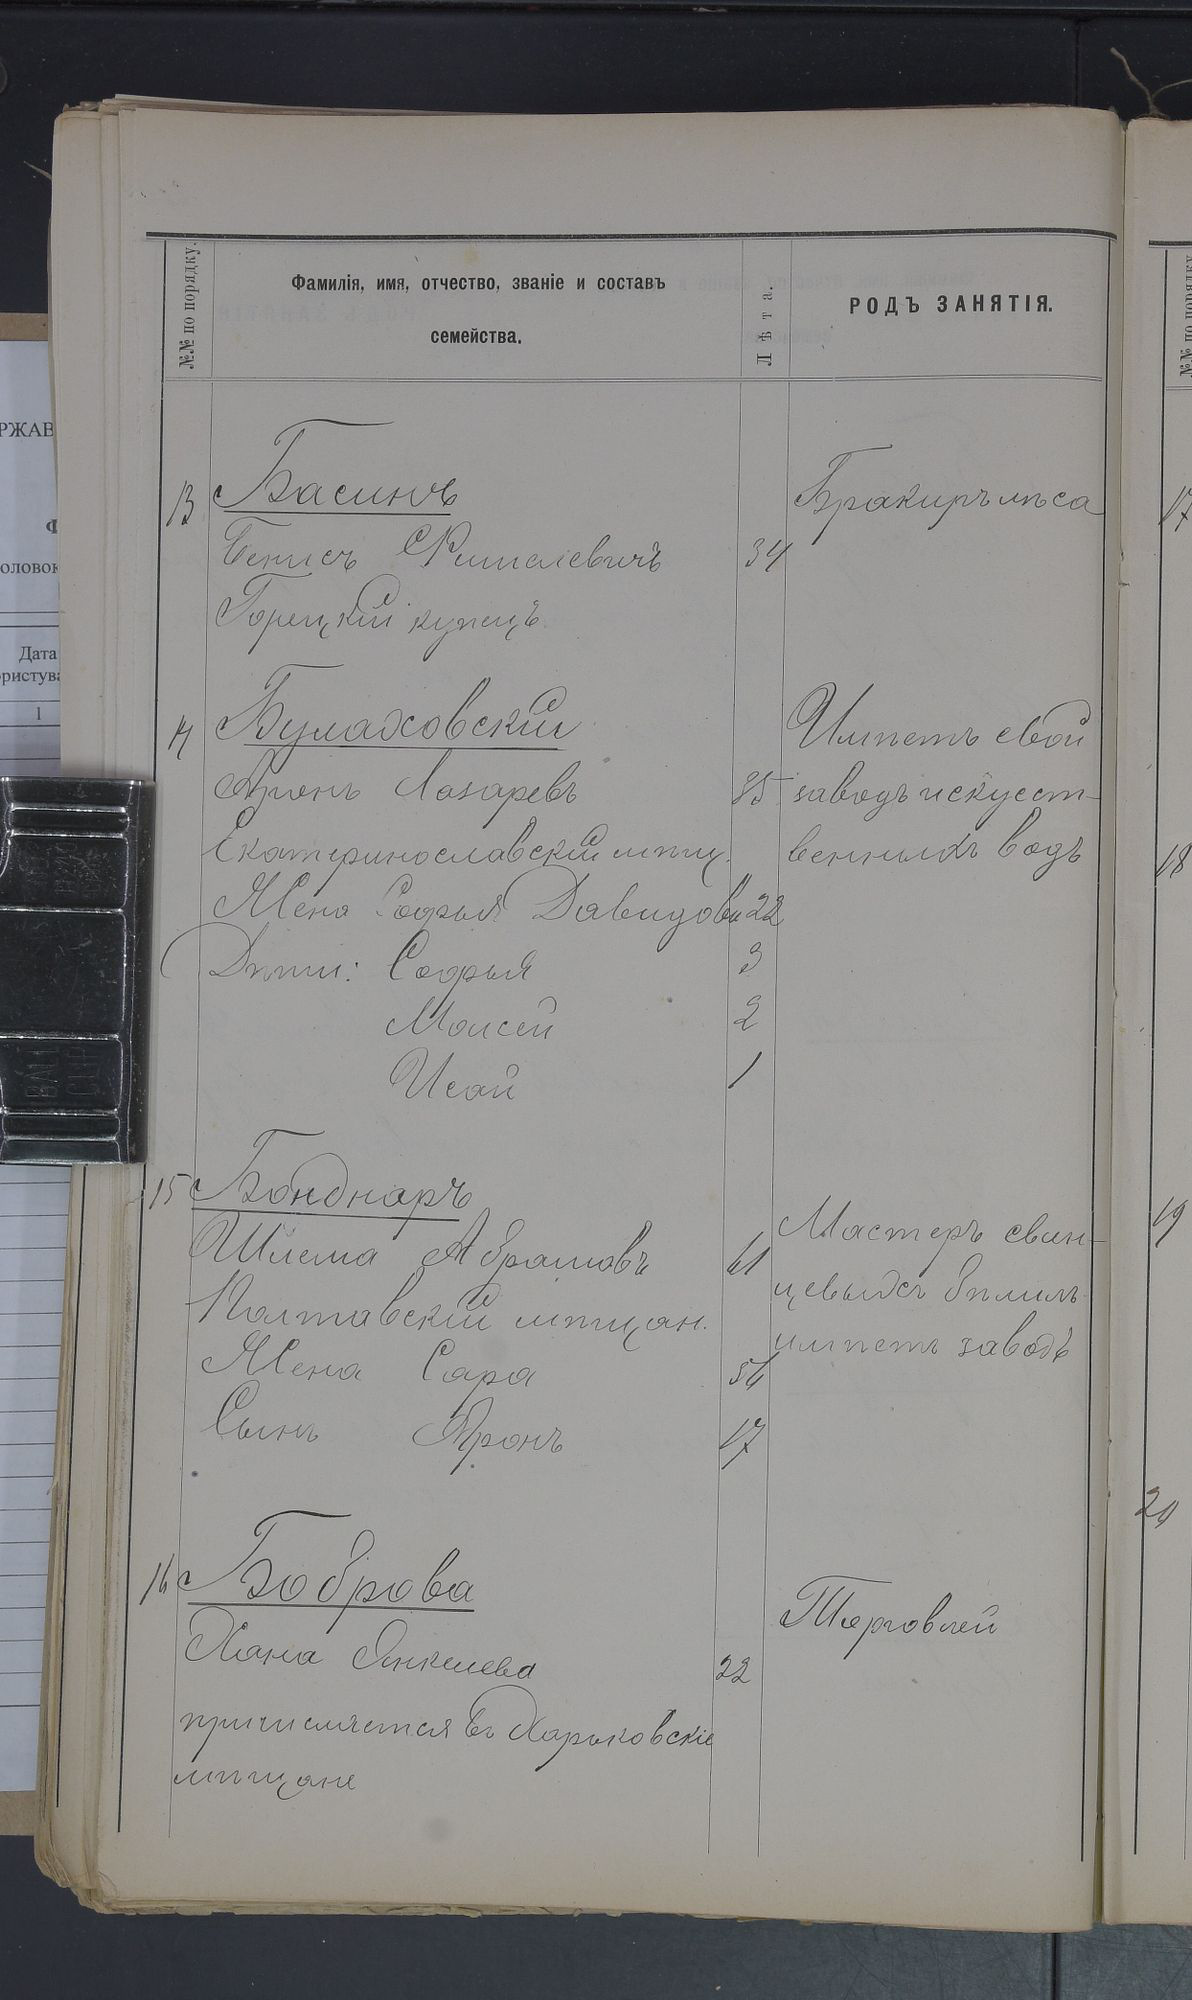 №№ по порядку.
Фамилія, имя, отчество, званіе и составъ
семейства.
Лѣта.
РОДЪ ЗАНЯТІЯ.
13 Басинъ
Бракиръ лѣса
34
Горецкій купецъ
14 Булаховскій
Имѣетъ свой
Аронъ Лазаревъ 35 заводъ искуст-
Екатеринославскій мѣщ. венныхъ водъ
Жена Софья Давидова 22
Дѣти: Софья 3
Моисей 2
Исай 1
15 Бонднаръ
Мастеръ свин-
Шлема Абрамовъ 61
цевыхъ бѣлилъ
Полтавскій мѣщан.
имѣетъ заводъ
Жена Сара 56
Сынъ Аронъ 17
16 Боброва
Торговлей
Хана Янкелева 22
причисляется въ Харьковскіе
мѣщане
РЖАВ
Ф
оловок
Дата
ристува
1
BALL
CLIP
№№ по порядку
17
18
19
20